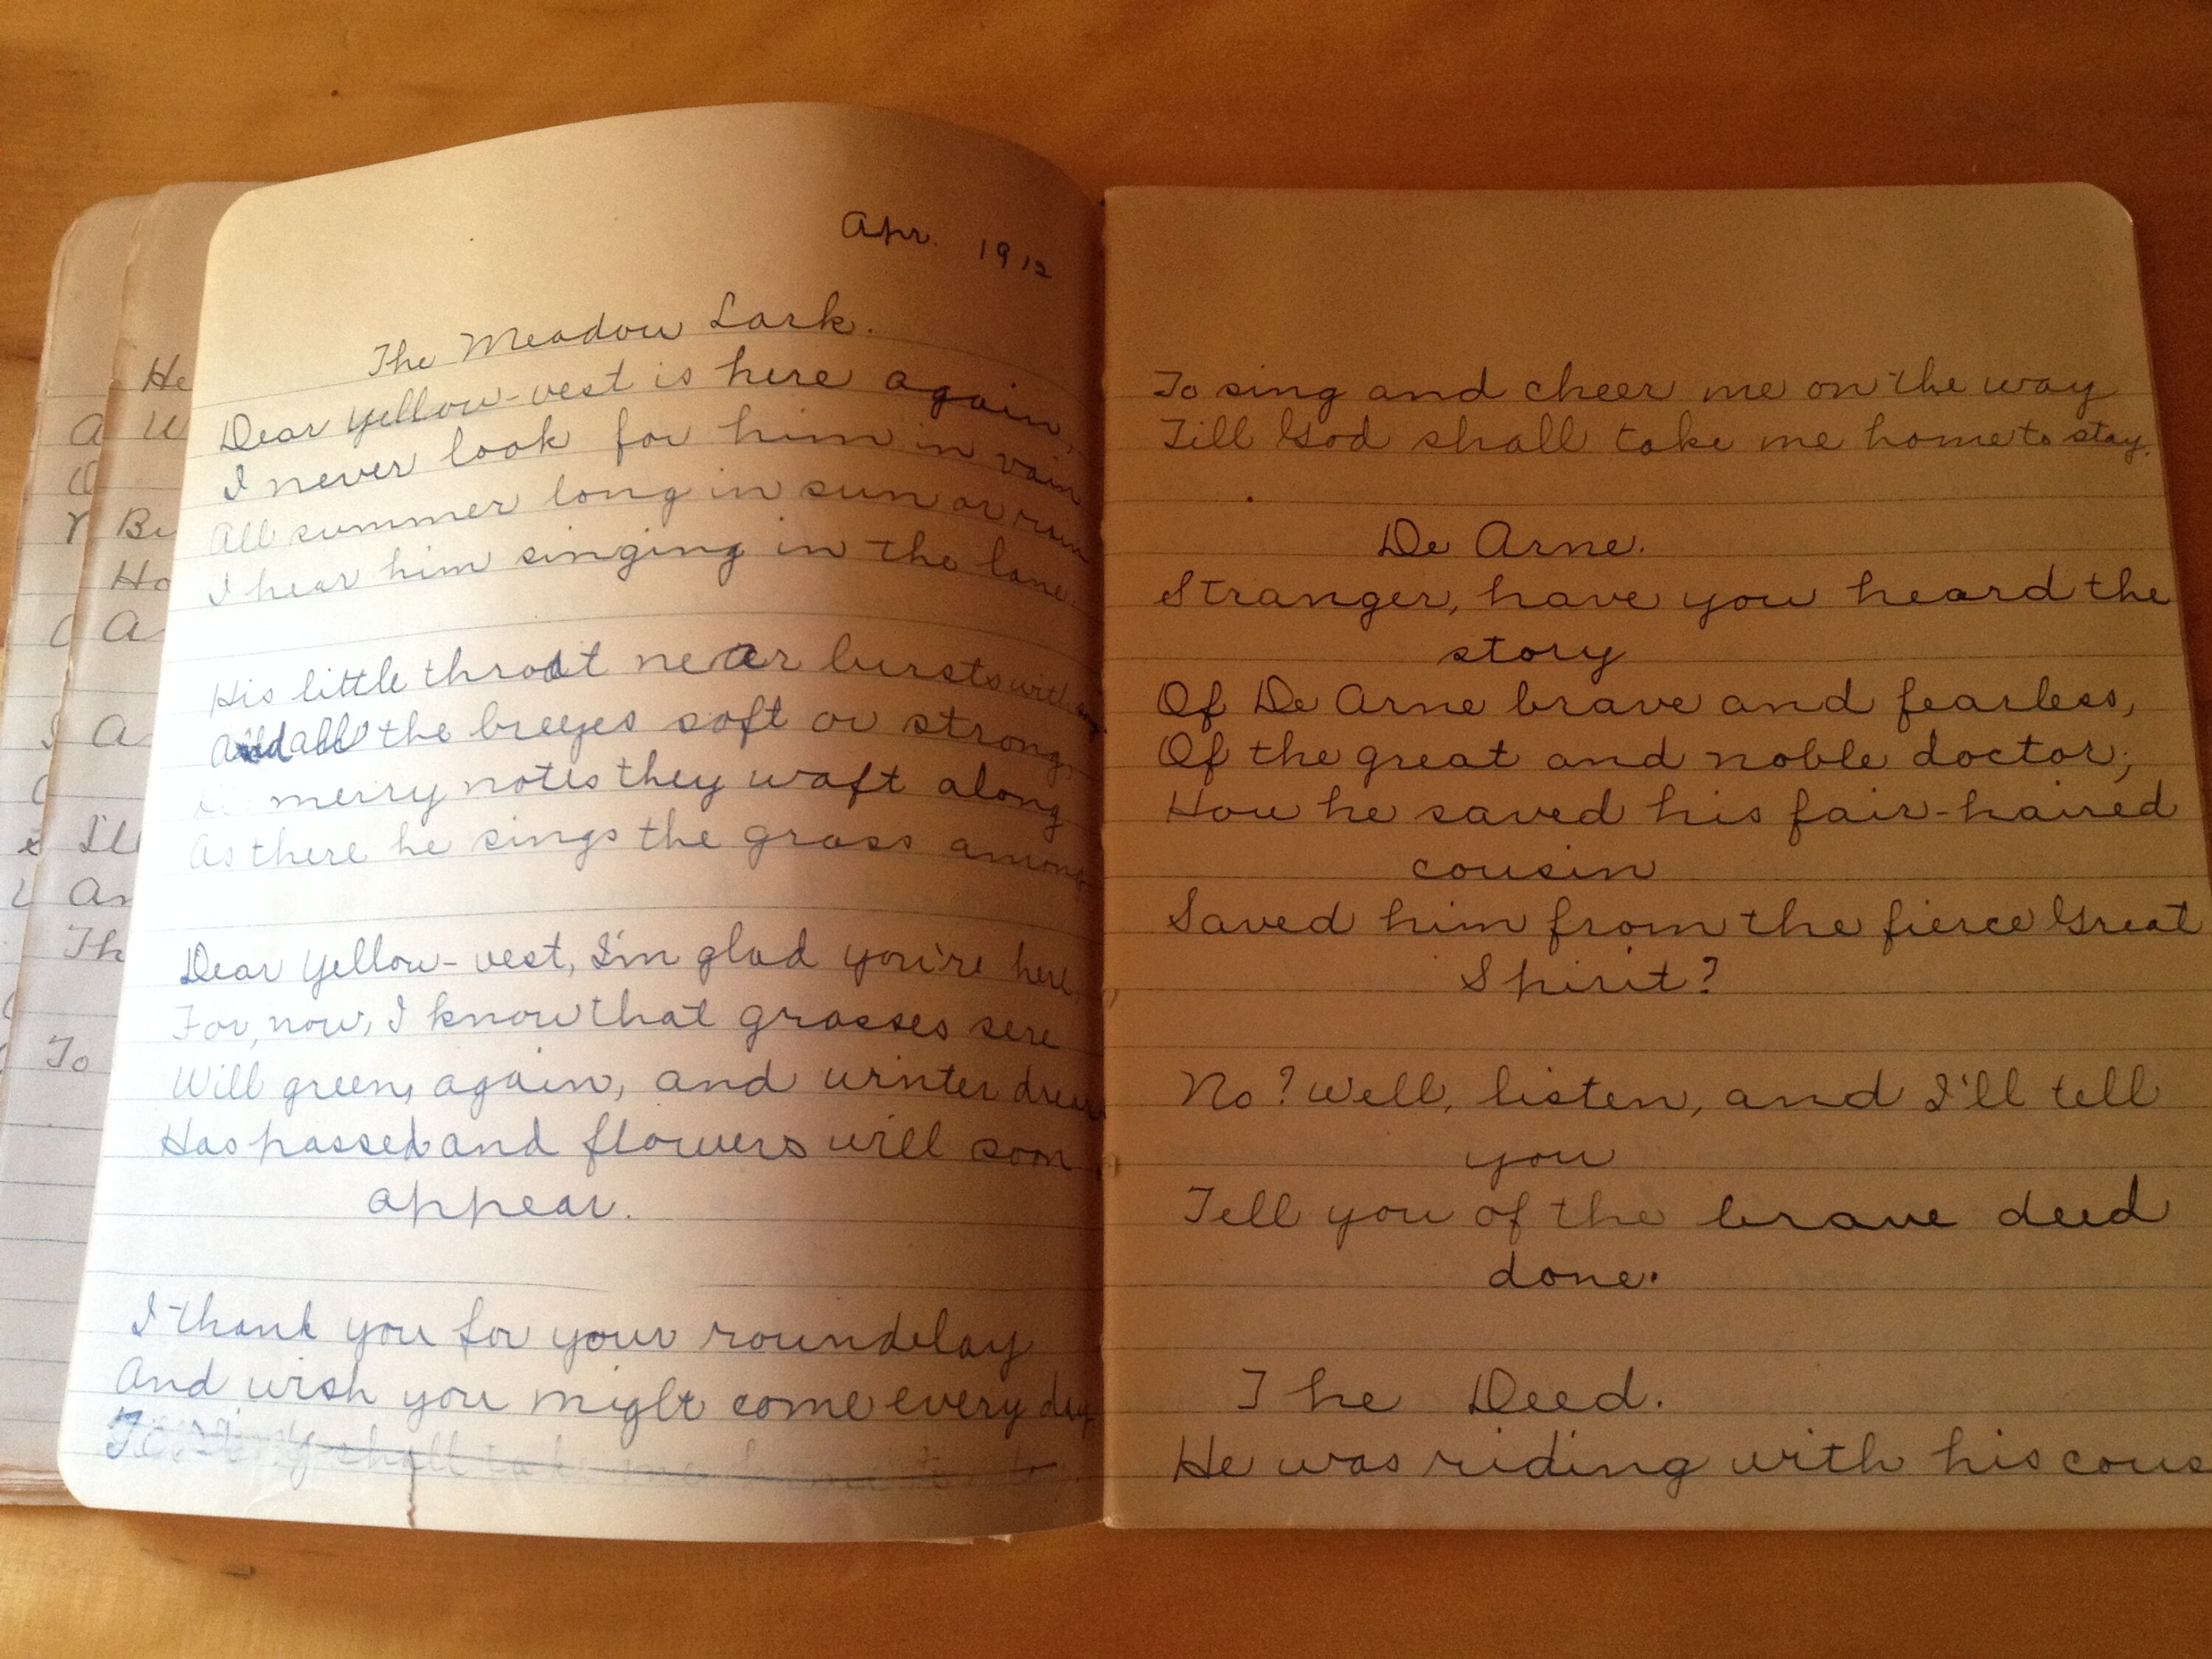 He
A W
Bu
Ho
A
A
I'll
An
Th
To
Apr. 1912
The Meadow Lark.
Dear Yellow-vest is here again,
I never look for him in vain
All summer long in sun or rain
I hear him singing in the lane.
His little throat near bursts with song
And all the breezes soft or strong,
merry notes they waft along
As there he sings the grass among
Dear Yellow-vest, I'm glad you're here,
For, now, I know that grasses sere
Will green, again, and winter drear
Has passed and flowers will soon
appear.
I thank you for your roundelay
And wish you might come every day
shall
To sing and cheer me on the way
Till God shall take me home to stay.
De Arne.
Stranger, have you heard the
story
Of De Arne brave and fearless,
Of the great and noble doctor;
How he saved his fair-haired
cousin
Saved him from the fierce Great
Spirit?
No? Well, listen, and I'll tell
you
Tell you of the brave deed
done.
The Deed.
He was riding with his cous